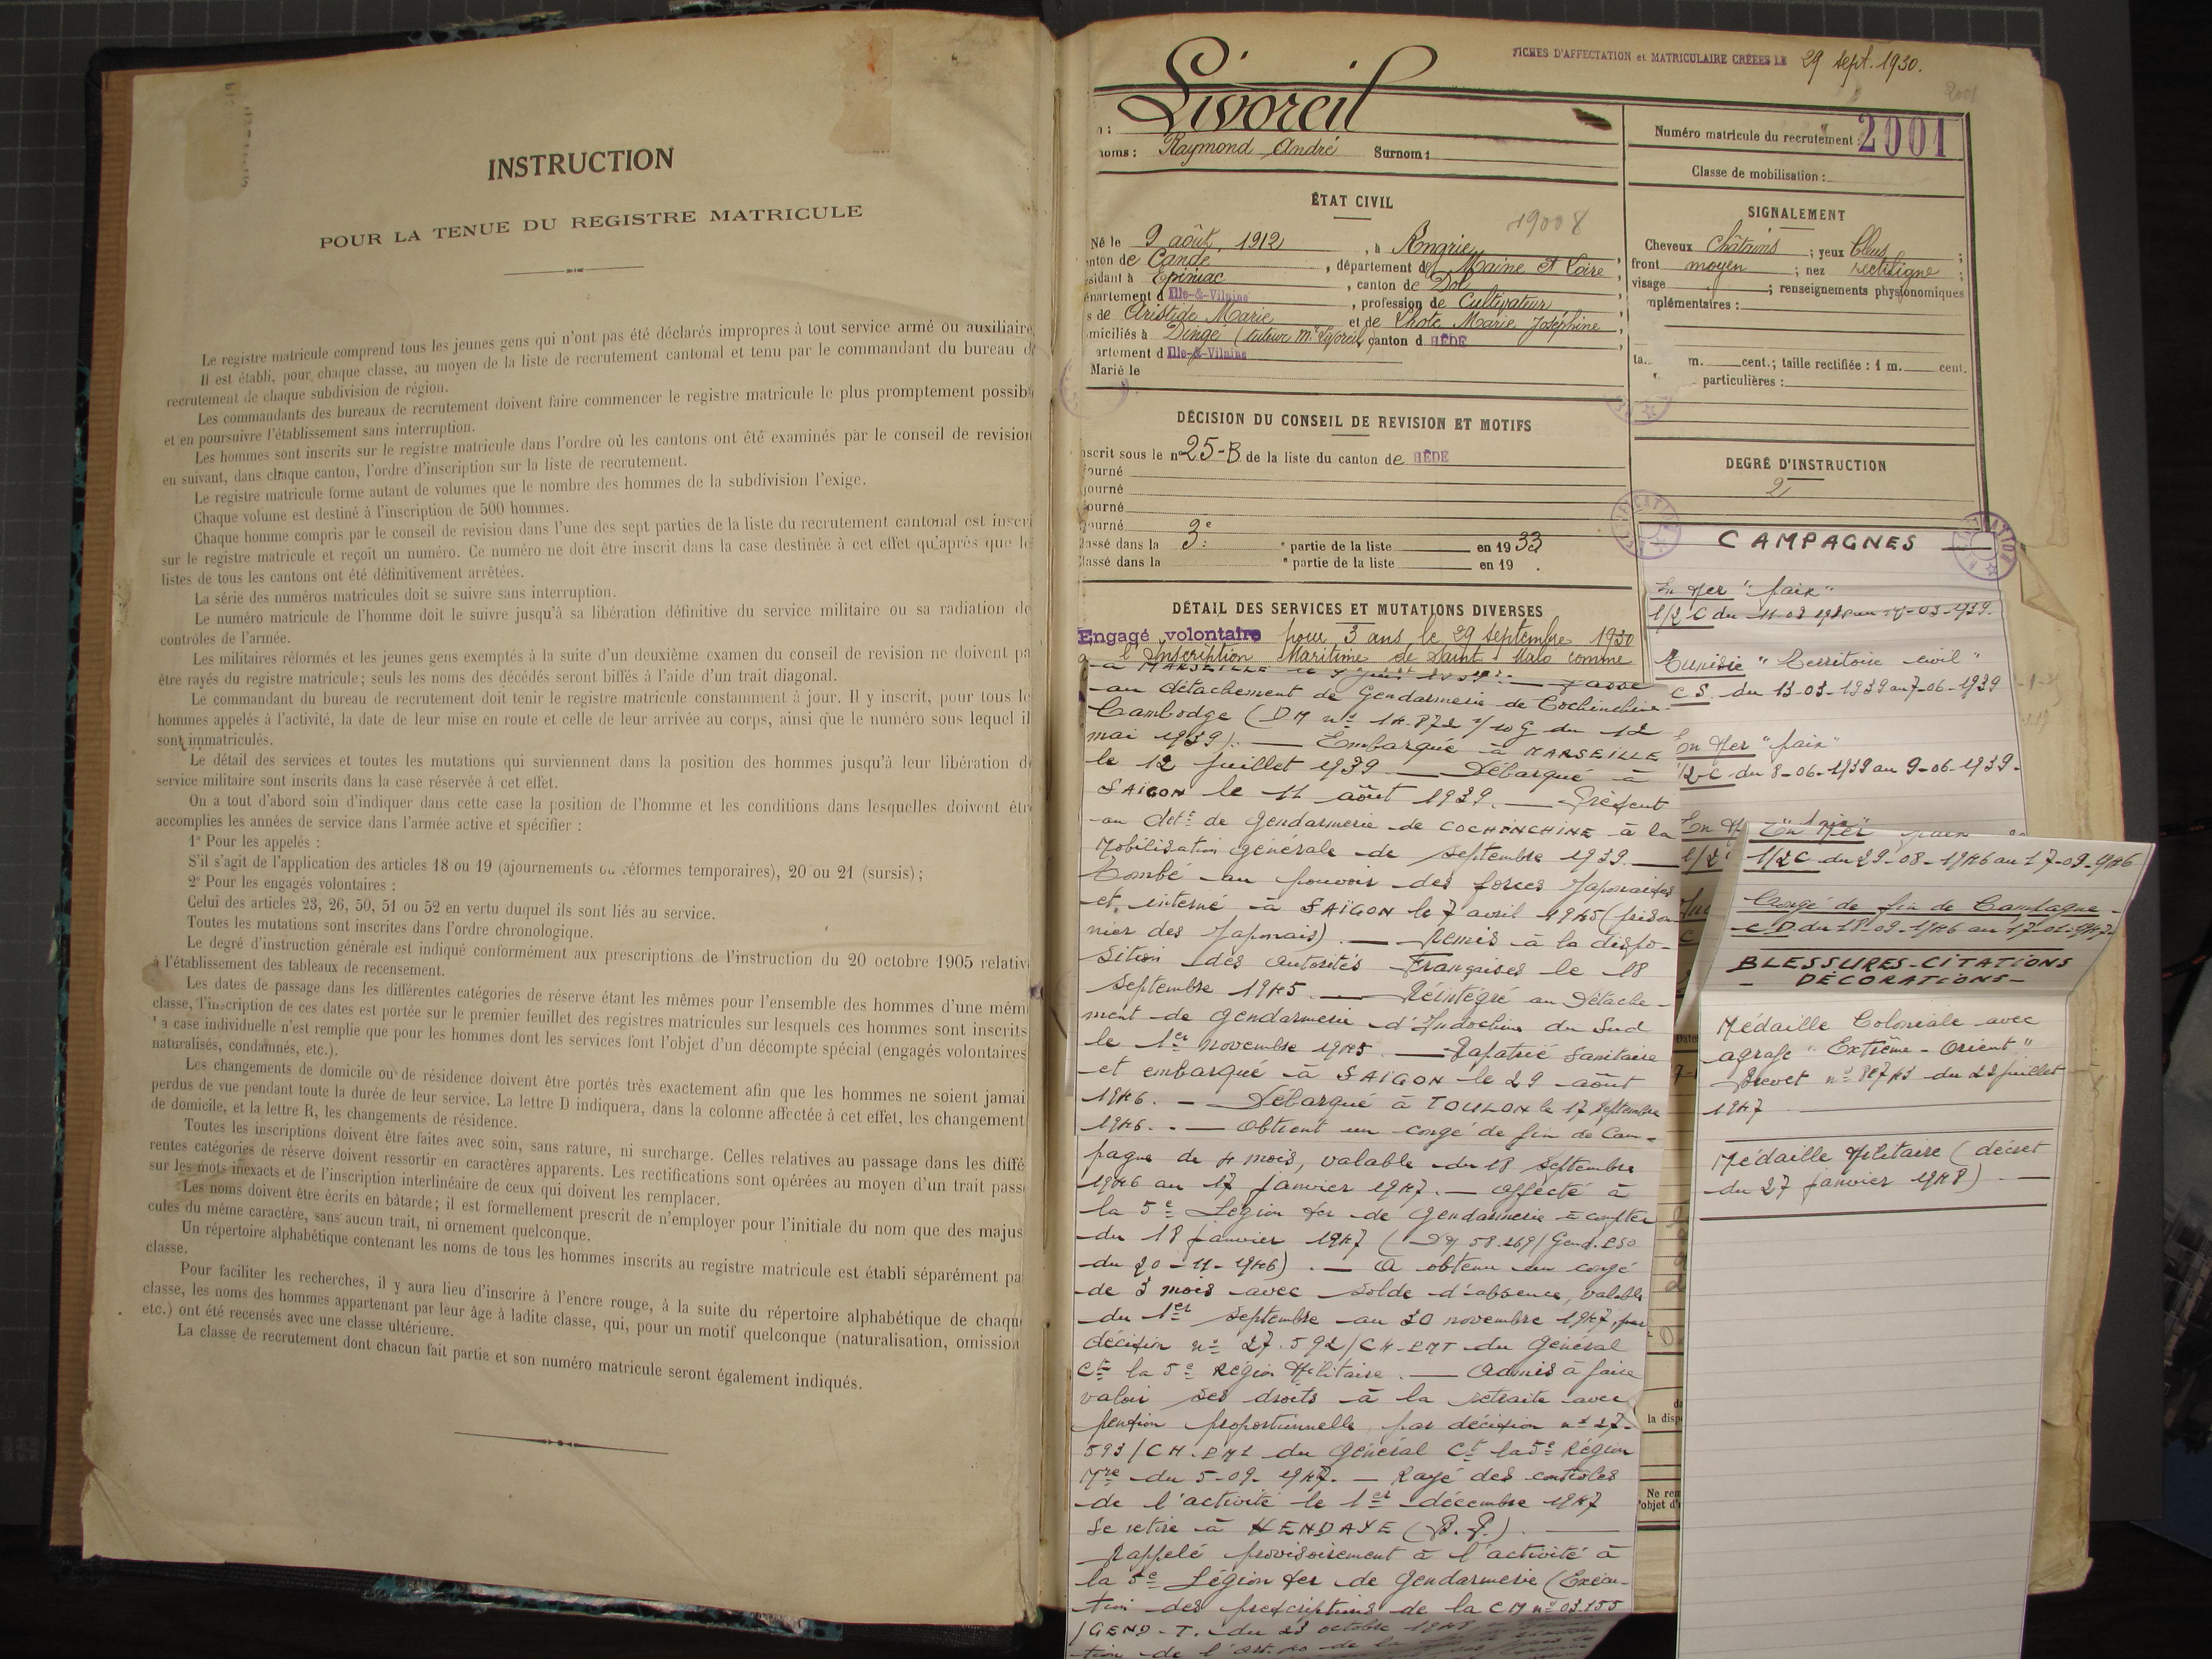 INSTRUCTION
POUR LA TENUE DU REGISTRE MATRICULE
Le registre matricule comprend tous les jeunes gens qui n'ont pas été déclarés impropres à tout service armé ou auxiliaire
Il est établi, pour chaque classe, au moyen de la liste de recrutement cantonal et tenu par le commandant du bureau d
recrutement de chaque subdivision de région.
Les commandants des bureaux de recrutement doivent faire commencer le registre matricule le plus promptement possib
et en poursuivre l'établissement sans interruption.
Les hommes sont inscrits sur le registre matricule dans l'ordre où les cantons ont été examinés par le conseil de revision
en suivant, dans chaque canton, l'ordre d'inscription sur la liste de recrutement.
Le registre matricule forme autant de volumes que le nombre des hommes de la subdivision l'exige.
Chaque volume est destiné à l'inscription de 500 hommes.
Chaque homme compris par le conseil de revision dans l'une des sept parties de la liste du recrutement cantonal est inscri
sur le registre matricule et reçoit un numéro. Ce numéro ne doit être inscrit dans la case destinée à cet effet qu'après que le
listes de tous les cantons ont été définitivement arrêtées.
La série des numéros matricules doit se suivre sans interruption.
Le numéro matricule de l'homme doit le suivre jusqu'à sa libération définitive du service militaire ou sa radiation de
contrôles de l'armée.
Les militaires réformés et les jeunes gens exemptés à la suite d'un deuxième examen du conseil de revision ne doivent pa
être rayés du registre matricule; seuls les noms des décédés seront biffés à l'aide d'un trait diagonal.
Le commandant du bureau de recrutement doit tenir le registre matricule constamment à jour. Il y inscrit, pour tous le
hommes appelés à l'activité, la date de leur mise en route et celle de leur arrivée au corps, ainsi que le numéro sous lequel il
sont immatriculés.
Le détail des services et toutes les mutations qui surviennent dans la position des hommes jusqu'à leur libération d
service militaire sont inscrits dans la case réservée à cet effet.
On a tout d'abord soin d'indiquer dans cette case la position de l'homme et les conditions dans lesquelles doivent êtr
accomplies les années de service dans l'armée active et spécifier :
1° Pour les appelés :
S'il s'agit de l'application des articles 18 ou 19 (ajournements ou réformes temporaires), 20 ou 21 (sursis);
2° Pour les engagés volontaires :
Celui des articles 23, 26, 50, 51 ou 52 en vertu duquel ils sont liés au service.
Toutes les mutations sont inscrites dans l'ordre chronologique.
Le degré d'instruction générale est indiqué conformément aux prescriptions de l'instruction du 20 octobre 1905 relativ
à l'établissement des tableaux de recensement.
Les dates de passage dans les différentes catégories de réserve étant les mêmes pour l'ensemble des hommes d'une mêm
classe, l'inscription de ces dates est portée sur le premier feuillet des registres matricules sur lesquels ces hommes sont inscrits
a case individuelle n'est remplie que pour les hommes dont les services font l'objet d'un décompte spécial (engagés volontaires
naturalisés, condamnés, etc.).
Les changements de domicile ou de résidence doivent être portés très exactement afin que les hommes ne soient jamai
perdus de vue pendant toute la durée de leur service. La lettre D indiquera, dans la colonne affectée à cet effet, les changement
de domicile, et la lettre R, les changements de résidence.
Toutes les inscriptions doivent être faites avec soin, sans rature, ni surcharge. Celles relatives au passage dans les diffé
rentes catégories de réserve doivent ressortir en caractères apparents. Les rectifications sont opérées au moyen d'un trait pass
sur les mots inexacts et de l'inscription interlinéaire de ceux qui doivent les remplacer.
Les noms doivent être écrits en bâtarde; il est formellement prescrit de n'employer pour l'initiale du nom que des majus
cules du même caractère, sans aucun trait, ni ornement quelconque.
Un répertoire alphabétique contenant les noms de tous les hommes inscrits au registre matricule est établi séparément pa
classe.
Pour faciliter les recherches, il y aura lieu d'inscrire à l'encre rouge, à la suite du répertoire alphabétique de chaqu
classe, les noms des hommes appartenant par leur âge à ladite classe, qui, pour un motif quelconque (naturalisation, omission
etc.) ont été recensés avec une classe ultérieure.
La classe de recrutement dont chacun fait partie et son numéro matricule seront également indiqués.
FICHES D'AFFECTATION et MATRICULAIRE CRÉÉES LE 29 sept. 1930.
2001
Livoreil
noms : Raymond André Surnom :
Numéro matricule du recrutement : 2001
Classe de mobilisation :
ÉTAT CIVIL
19008
Né le 9 août 1912, à Angrie,
anton de Candé, département de Maine et Loire,
sidant à Epiniac, canton de Dol,
épartement d Ille-&-Vilaine, profession de Cultivateur,
s de Aristide Marie et de Lhote Marie Joséphine,
omiciliés à Dingé (tuteur Mr Livoreil), canton d HÉDÉ
artement d Ille-&-Vilaine
Marié le
SIGNALEMENT
Cheveux châtains; yeux bleus;
front moyen; nez rectiligne;
visage ; renseignements physionomiques
mplémentaires :
ta. m. cent.; taille rectifiée : 1 m. cent.
particulières :
DÉCISION DU CONSEIL DE REVISION ET MOTIFS
nscrit sous le n° 25-B de la liste du canton de HÉDÉ
journé
journé
journé
journé
lassé dans la 3e ° partie de la liste en 1933
lassé dans la ° partie de la liste en 19 .
DEGRÉ D'INSTRUCTION
2
DÉTAIL DES SERVICES ET MUTATIONS DIVERSES
Engagé volontaire pour 3 ans le 29 septembre 1930
à l'Inscription Maritime de Saint Malo comme
à MARSEILLE le 9 juin 1939. — Passe
au détachement de Gendarmerie de Cochinchine-
Cambodge (DM n° 14.872 /10 G du 12
mai 1939). — Embarqué à MARSEILLE
le 12 juillet 1939 — Débarqué à
SAÏGON le 11 août 1939. — Présent
au détt de Gendarmerie de COCHINCHINE à la
Mobilisation générale de septembre 1939. —
Tombé au pouvoir des forces Japonaises
et interné à SAÏGON le 7 avril 1945 (prison
nier des Japonais). — Remis à la dispo-
sition des autorités Françaises le 18
septembre 1945. — Réintégré au Détache-
ment de gendarmerie d'Indochine du Sud
le 1er novembre 1945. — Rapatrié sanitaire
et embarqué à SAÏGON le 29 août
1946. — Débarqué à TOULON le 17 septembre
1946. — Obtient un congé de fin de Cam-
pagne de 4 mois, valable du 18 septembre
1946 au 17 janvier 1947. — affecté à
la 5e Légion ter de Gendarmerie à compter
du 18 janvier 1947 (DM 58.269/Gend. P.SO
du 20-11-1946). — A obtenu un congé
de 3 mois avec solde d'absence, valable
du 1er septembre au 30 novembre 1947, par
décision n° 27.592/CH-EMT du Général
Ct la 5e Région Militaire. — Admis à faire
valoir ses droits à la retraite avec
pension proportionnelle, par décision n° 27-
593/CH.EMT du Général Ct la 5e Région
Mre du 5-09-1947. — Rayé des contrôles
de l'activité le 1er décembre 1947
Se retire à HENDAYE (B.P.). —
Rappelé provisoirement à l'activité à
la 5e Légion ter de Gendarmerie (Exécu-
tion des prescriptions de la CM n° 03.155
/GEND-T. du 23 octobre 1948
tion de l'art. 20 de la
CAMPAGNES
En Mer "paix"
1/2 C du 11-03-1939 au 12-03-1939.
Tunisie "Territoire civil"
C S. du 13-03-1939 au 7-06-1939
En Mer "paix"
1/2 C du 8-06-1939 au 9-06-1939.
En Mer
1/2 C du 29-08-1946 au 17-09-1946
Congé de fin de Campagne
C D du 18-09-1946 au 17-01-1947
BLESSURES-CITATIONS
- DÉCORATIONS-
Médaille Coloniale avec
agrafe "Extrême-Orient"
Brevet n° 80743 du 22 juillet
1947
Médaille Militaire (décret
du 27 janvier 1948). —
la disp
Ne rem
'objet d'